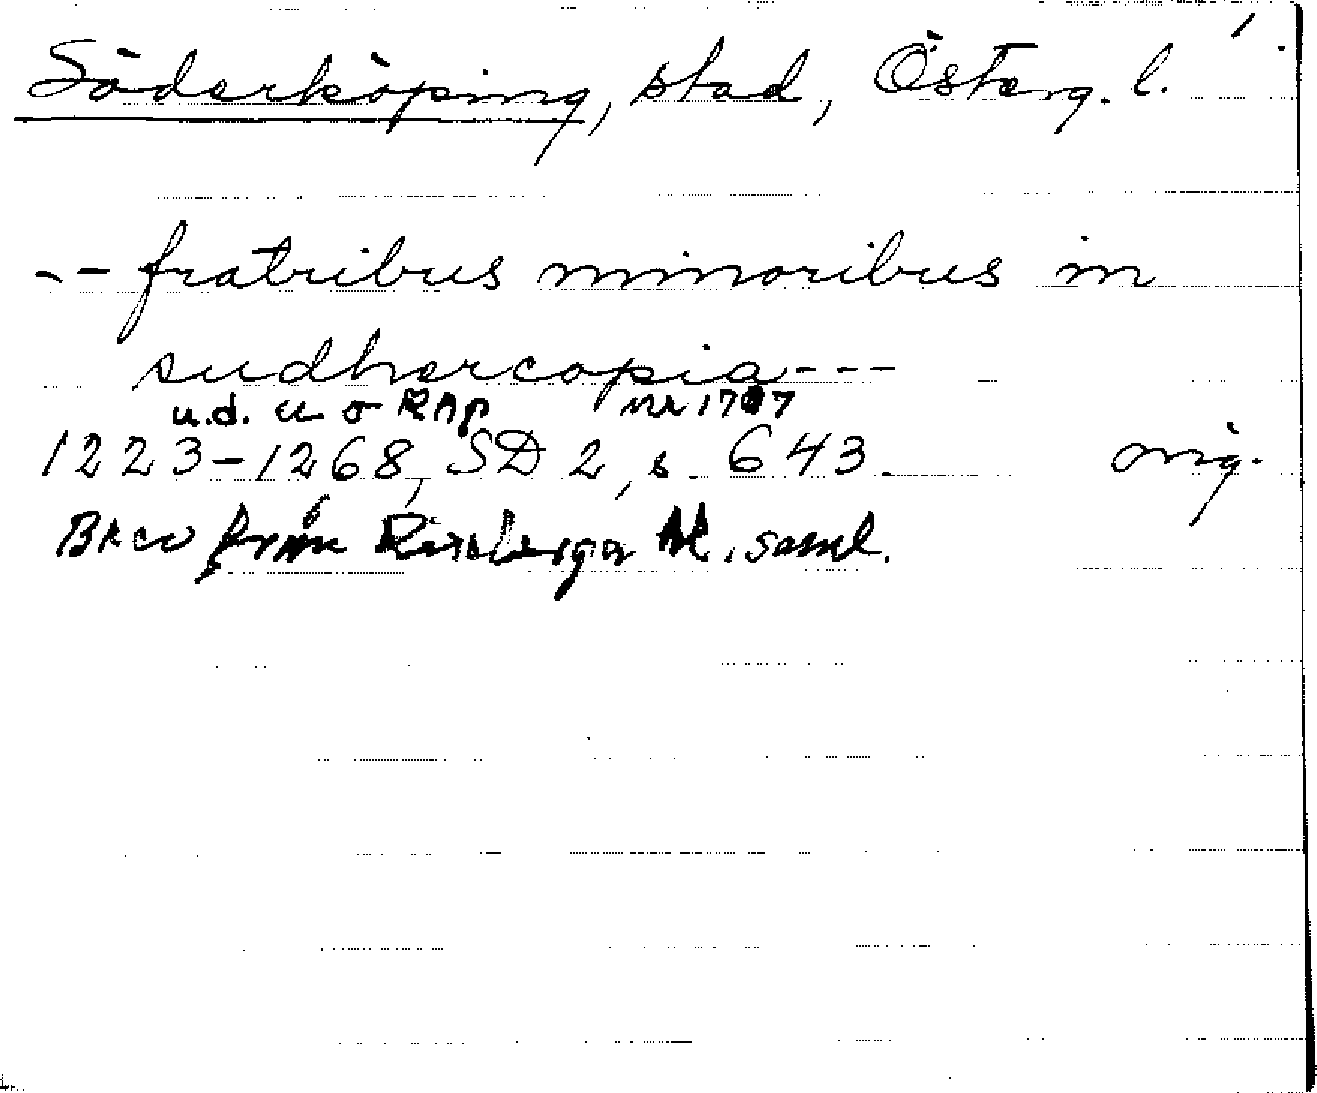 Söderköping, stad, Österg. l.
-- fratribus minoribus in
sudhercopia---
u.d. u o RAp nr 1707
1223-1268, SD 2, s. 643. orig.
från Riseberga kl. saml.